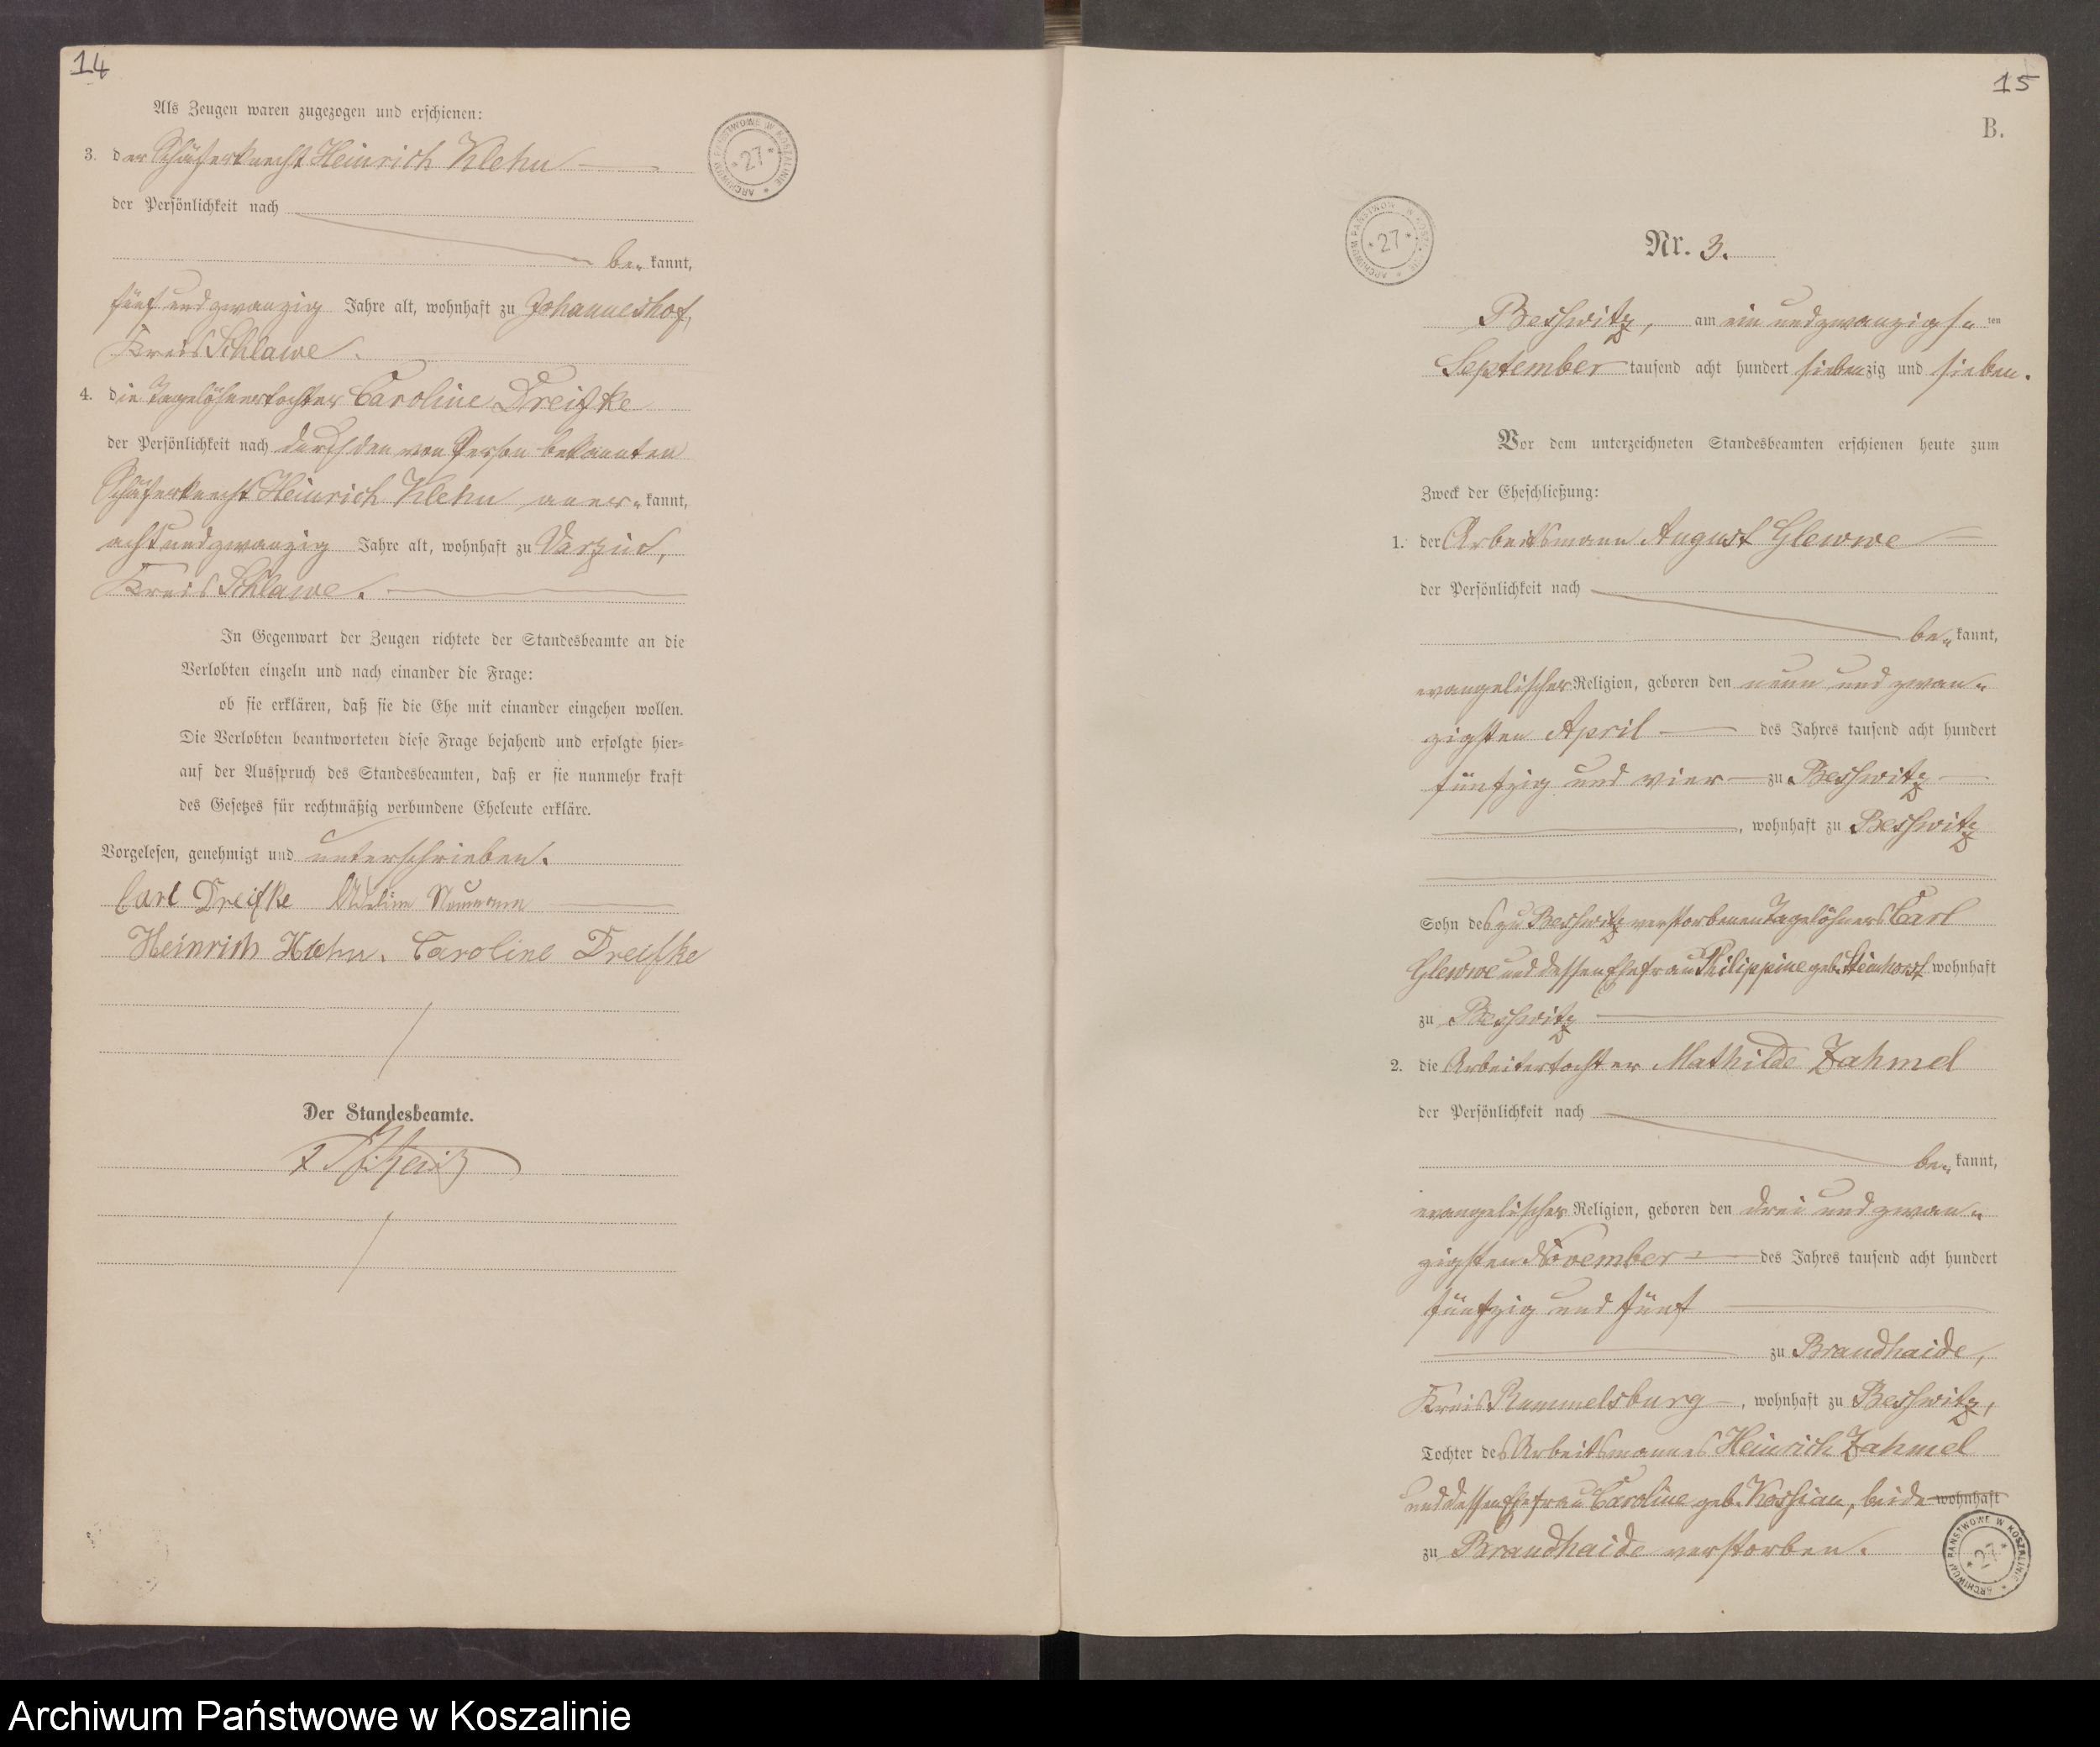 14
Als Zeugen waren zugezogen und erschienen:
3. der Schäferknecht Heinrich Klehn
der Persönlichkeit nach
be- kannt,
fünf und zwanzig Jahre alt, wohnhaft zu Johanneshof,
Kreis Schlawe.
4. die Tagelöhnertochter Caroline Dreifke
der Persönlichkeit nach durch den von Person bekannten
Schäferknecht Heinrich Klehn aner- kannt,
acht und zwanzig Jahre alt, wohnhaft zu Varzin,
Kreis Schlawe.
In Gegenwart der Zeugen richtete der Standesbeamte an die
Verlobten einzeln und nach einander die Frage:
ob sie erklären, daß sie die Ehe mit einander eingehen wollen.
Die Verlobten beantworteten diese Frage bejahend und erfolgte hier-
auf der Ausspruch des Standesbeamten, daß er sie nunmehr kraft
des Gesetzes für rechtmäßig verbundene Eheleute erkläre.
Vorgelesen, genehmigt und unterschrieben.
Carl Dreifke Neumann
Heinrich Klehn. Caroline Dreifke
Der Standesbeamte.
ARCHIWUM PAŃSTWOWE W KOSZALINIE * 27 *
15
B.
ARCHIWUM PAŃSTWOWE W KOSZALINIE * 27 *
Nr. 3.
Beßwitz, am ein und zwanzigs- ten
September tausend acht hundert siebenzig und sieben.
Vor dem unterzeichneten Standesbeamten erschienen heute zum
Zweck der Eheschließung:
1. der Arbeitsmann August Glewwe
der Persönlichkeit nach
be- kannt,
evangelischer Religion, geboren den neun und zwan-
zigsten April des Jahres tausend acht hundert
fünfzig und vier zu Beßwitz
, wohnhaft zu Beßwitz
Sohn des zu Beßwitz verstorbenen Tagelöhners Carl
Glewwe und dessen Ehefrau Philippine geb. Steinhorst wohnhaft
zu Beßwitz
2. die Arbeitertochter Mathilde Zahmel
der Persönlichkeit nach
be- kannt,
evangelischer Religion, geboren den drei und zwan-
zigsten November des Jahres tausend acht hundert
fünfzig und fünf
zu Brandhaide,
Kreis Rummelsburg, wohnhaft zu Beßwitz,
Tochter des Arbeitsmannes Heinrich Zahmel
und dessen Ehefrau Caroline geb. Kossian, beide wohnhaft
zu Brandhaide verstorben.
ARCHIWUM PAŃSTWOWE W KOSZALINIE * 27 *
Archiwum Państwowe w Koszalinie